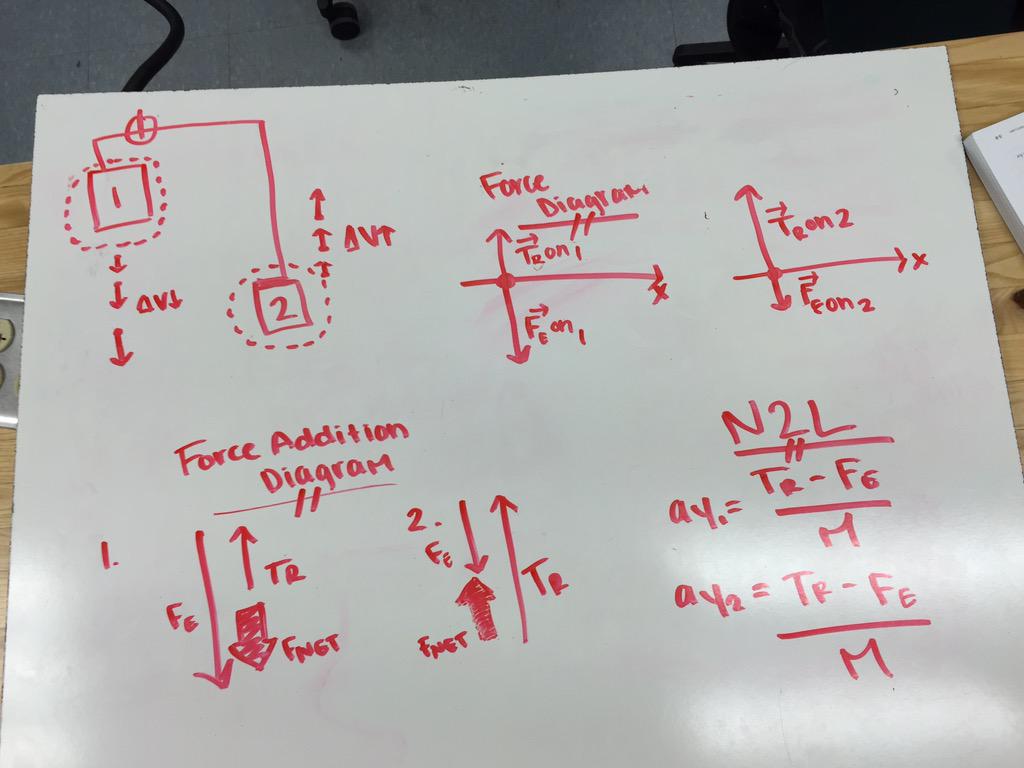 1
ΔV↓
2
ΔV↑
Force
Diagram
T⃗R on 1
x
F⃗E on 1
T⃗R on 2
x
F⃗E on 2
Force Addition
Diagram
1.
FE
TR
FNET
2.
FE
TR
FNET
N2L
ay1 = TR - FE
M
ay2 = TR - FE
M